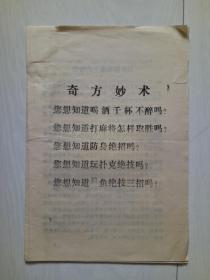 奇方妙术
您想知道喝酒千杯不醉吗?
您想知道打麻将怎样取胜吗?
您想知道防身绝招吗?
您想知道玩扑克绝技吗?
您想知道 鱼绝技三招吗?